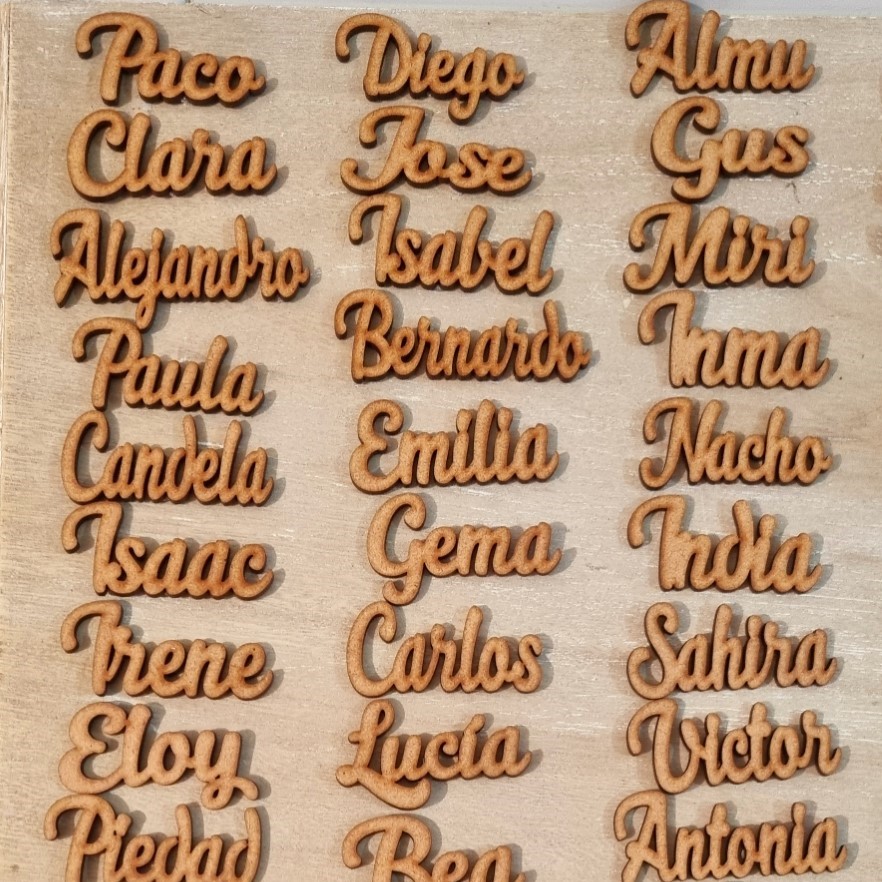 Paco Diego Almu
Clara Jose Gus
Alejandro Isabel Miri
Paula Bernardo Inma
Candela Emilia Nacho
Isaac Gema India
Irene Carlos Sahira
Eloy Lucía Victor
Piedad Bea Antonia